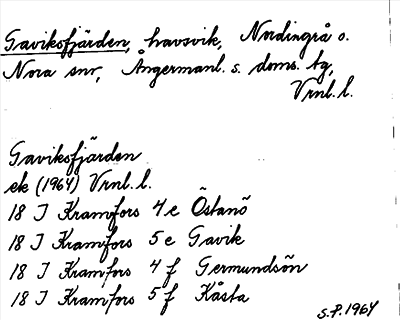 Gaviksfjärden, havsvik, Nordingrå o.
Nora snr, Ångermanl. s. doms. tg,
Vrnl. l.
Gaviksfjärden
ek (1964) Vrnl. l.
18 I Kramfors 4 e Östanö
18 I Kramfors 5 e Gavik
18 I Kramfors 4 f Germundsön
18 I Kramfors 5 f Kåsta
S.P. 1964